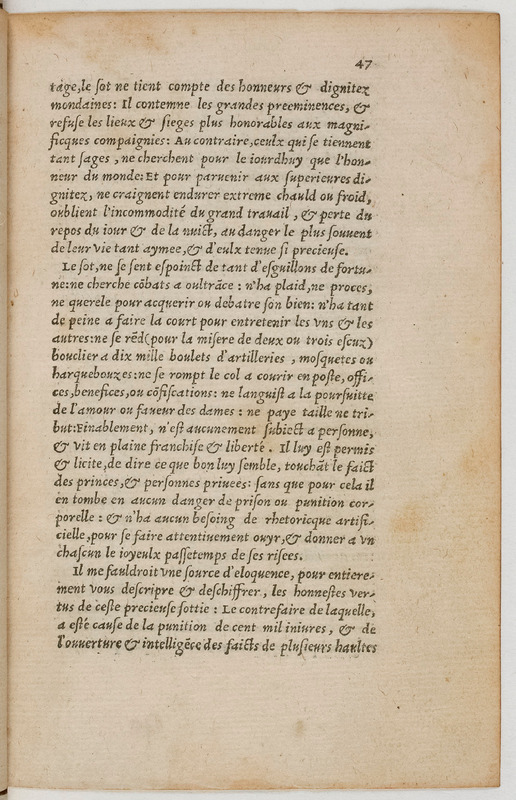 47
tage,le sot ne tient compte des honneurs & dignitez
mondaines: Il contemne les grandes preeminences, &
refuse les lieux & sieges plus honorables aux magni-
ficques compaignies: Au contraire,ceulx qui se tiennent
tant sages , ne cherchent pour le iourdhuy que l'hon-
neur du monde: Et pour paruenir aux superieures di-
gnitez, ne craignent endurer extreme chauld ou froid,
oublient l'incommodité du grand trauail , & perte du
repos du iour & de la nuict, au danger le plus souuent
de leur vie tant aymee,& d'eulx tenue si precieuse.
Le sot,ne se sent espoinct de tant d'esguillons de fortu-
ne:ne cherche cõbats a oultrãce : n'ha plaid,ne proces,
ne querele pour acquerir ou debatre son bien: n'ha tant
de peine a faire la court pour entretenir les vns & les
autres:ne se rẽd(pour la misere de deux ou trois escuz)
bouclier a dix mille boulets d'artilleries , mosquetes ou
harquebouzes:ne se rompt le col a courir en poste, offi-
ces,benefices,ou cõfiscations: ne languist a la poursuitte
de l'amour ou faueur des dames : ne paye taille ne tri-
but:Finablement, n'est aucunement subiect a personne,
& vit en plaine franchise & liberté . Il luy est permis
& licite,de dire ce que bon luy semble, touchãt le faict
des princes,& personnes priuees: sans que pour cela il
en tombe en aucun danger de prison ou punition cor-
porelle : & n'ha aucun besoing de rhetoricque artifi-
cielle,pour se faire attentiuement ouyr,& donner a vn
chascun le ioyeulx passetemps de ses risees.
Il me fauldroit vne source d'eloquence, pour entiere-
ment vous descripre & deschiffrer, les honnestes ver-
tus de ceste precieuse sottie : Le contrefaire de laquelle,
a esté cause de la punition de cent mil iniures , & de
l'ouuerture & intelligẽce des faicts de plusieurs haultes